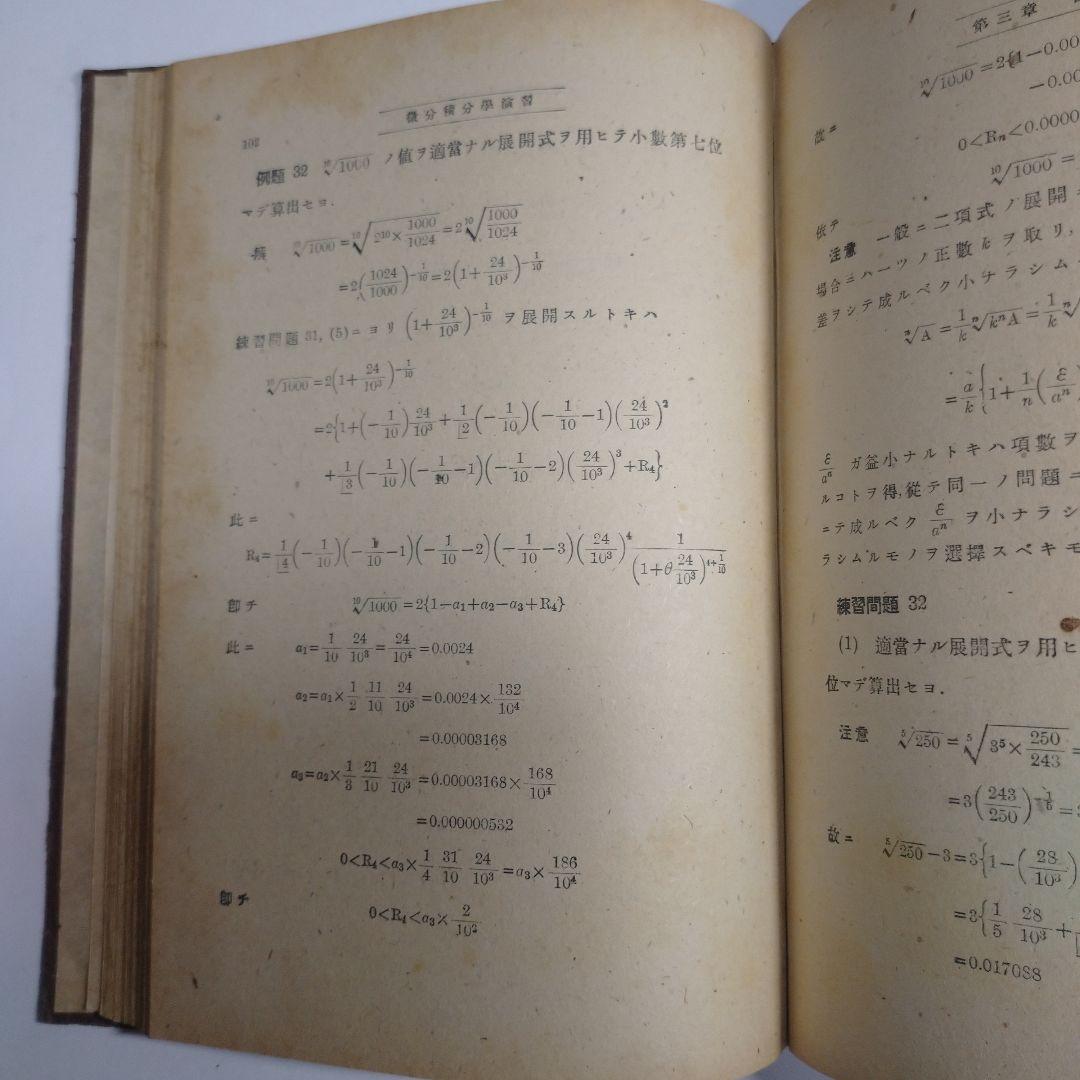 微分積分學演習
102
例題 32 ¹⁰√1000 ノ値ヲ適當ナル展開式ヲ用ヒテ小數第七位
マデ算出セヨ.
¹⁰√1000 = ¹⁰√(2¹⁰ × 1000/1024) = 2 ¹⁰√(1000/1024)
= 2(1024/1000)^(-1/10) = 2(1 + 24/10³)^(-1/10)
練習問題 31, (5) = ヨリ (1 + 24/10³)^(-1/10) ヲ展開スルトキハ
¹⁰√1000 = 2(1 + 24/10³)^(-1/10)
= 2{1 + (-1/10) 24/10³ + 1/|2 (-1/10)(-1/10 - 1)(24/10³)²
+ 1/|3 (-1/10)(-1/10 - 1)(-1/10 - 2)(24/10³)³ + R₄}
此 =
R₄ = 1/|4 (-1/10)(-1/10 - 1)(-1/10 - 2)(-1/10 - 3)(24/10³)⁴ 1/(1 + θ 24/10³)^(4+1/10)
卽チ ¹⁰√1000 = 2{1 - a₁ + a₂ - a₃ + R₄}
此 = a₁ = 1/10 24/10³ = 24/10⁴ = 0.0024
a₂ = a₁ × 1/2 11/10 24/10³ = 0.0024 × 132/10⁴
= 0.00003168
a₃ = a₂ × 1/3 21/10 24/10³ = 0.00003168 × 168/10⁴
= 0.000000532
0 < R₄ < a₃ × 1/4 31/10 24/10³ = a₃ × 186/10⁴
卽チ 0 < R₄ < a₃ × 2/10²
第三章
¹⁰√1000 = 2{1 - 0.00
- 0.00
故 =
0 < Rₙ < 0.0000
¹⁰√1000 =
依テ
注意 一般 = 二項式ノ展開
場合 = ハ一ツノ正數 k ヲ取リ,
差ヲシテ成ルベク小ナラシム
ⁿ√A = 1/k ⁿ√(kⁿA) = 1/k
= a/k {1 + 1/n (ε/aⁿ)
ε/aⁿ ガ益小ナルトキハ項數ヲ
ルコトヲ得, 從テ同一ノ問題 =
= テ成ルベク ε/aⁿ ヲ小ナラシ
ラシムルモノヲ選擇スベキモ
練習問題 32
(1) 適當ナル展開式ヲ用ヒ
位マデ算出セヨ.
注意 ⁵√250 = ⁵√(3⁵ × 250/243) =
= 3(243/250)^(-1/5) =
故 = ⁵√250 - 3 = 3{1 - (28/10³)
= 3{1/5 28/10³ +
= 0.017088